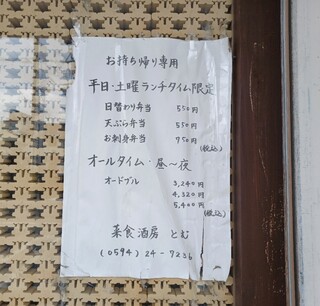 お持ち帰り専用
平日・土曜ランチタイム限定
日替わり弁当 550円
天ぷら弁当 550円
お刺身弁当 750円
(税込)
オールタイム・昼〜夜
オードブル 3,240円
4,320円
5,400円
(税込)
菜食酒房 とむ
(0594) 24-7236